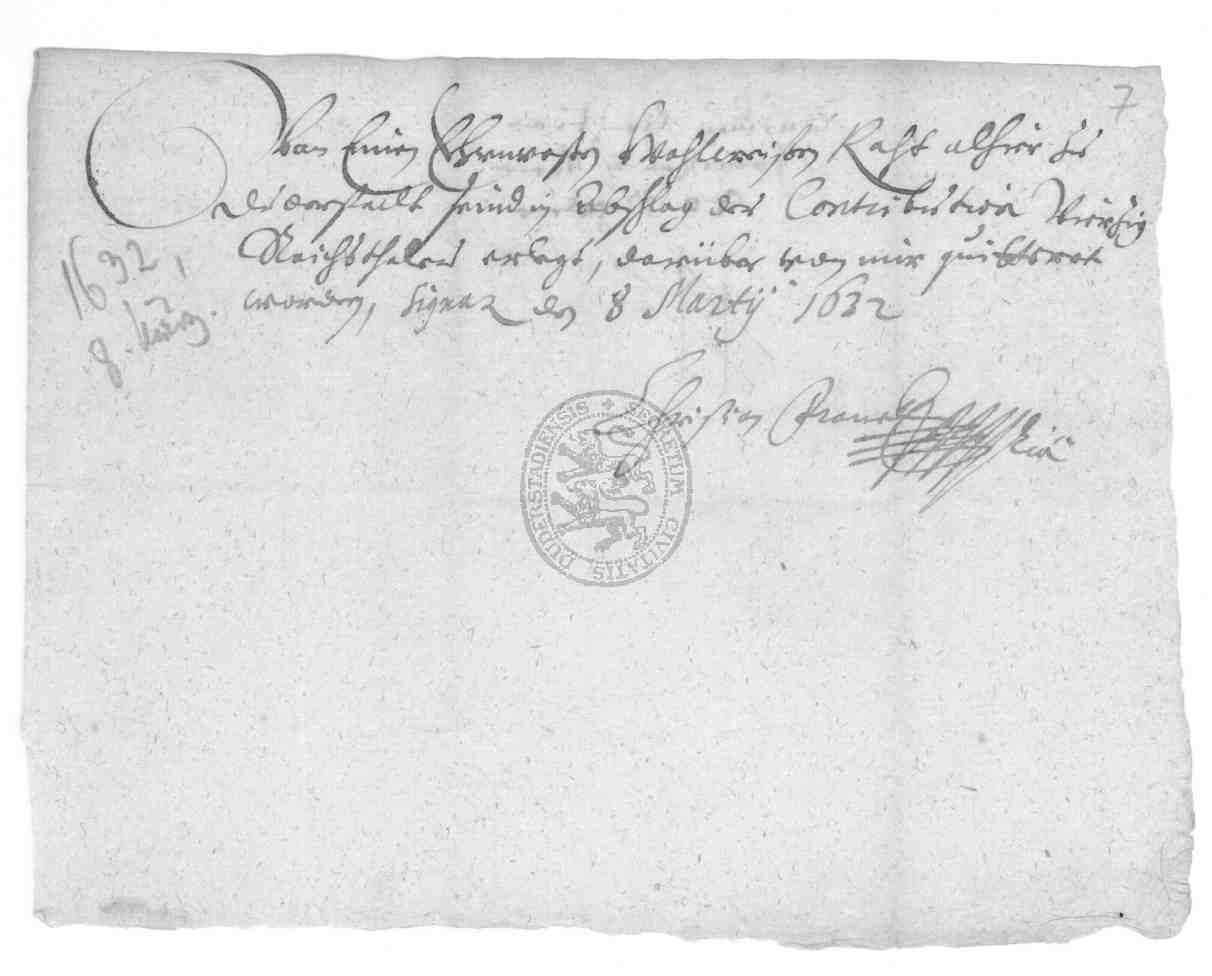 7
Von Einen Ehrnvesten Wohlweisen Raht alhier zu
Duderstadt seind in Abschlag der Contribution Viertzig
Reichsthaler erlegt, darüber von mir quittiret
worden, Signat den 8 Martij 1632
1632,
8. März.
Christian
SECRETUM CIVITATIS DUDERSTADIENSIS